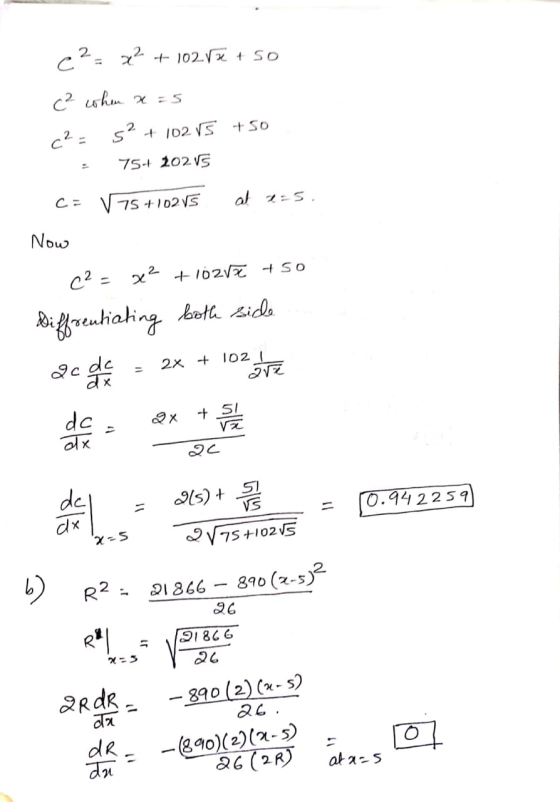 c² = x² + 102√x + 50
c² when x = 5
c² = 5² + 102√5 + 50
= 75 + 102√5
c = √(75 + 102√5) at x = 5.
Now
c² = x² + 102√x + 50
Diffrentiating both side
2c dc/dx = 2x + 102 1/(2√x)
dc/dx = (2x + 51/√x)/(2c)
dc/dx |ₓ₌₅ = (2(5) + 51/√5)/(2√(75 + 102√5)) = 0.942259
b) R² = (21866 − 890(x-5)²)/26
R|ₓ₌₅ = √(21866/26)
2R dR/dx = −890(2)(x-5)/26.
dR/dx = −(890)(2)(x-5)/(26(2R)) = at x=5 0